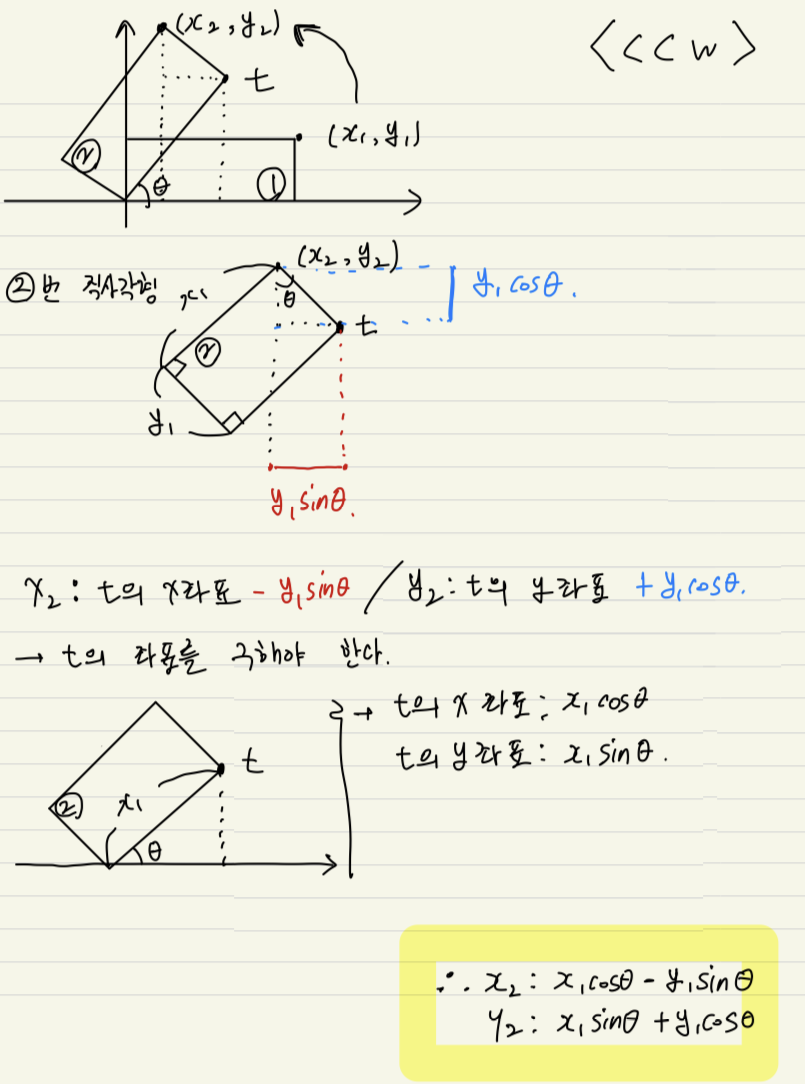 (x₂, y₂)
<CCW>
t
(x₁, y₁)
②
θ
①
②번 직사각형
(x₂, y₂)
x₁
θ
y₁cosθ.
t
②
y₁
y₁sinθ.
x₂ : t의 x좌표 - y₁sinθ / y₂ : t의 y좌표 + y₁cosθ.
→ t의 좌표를 구해야 한다.
→ t의 x좌표 : x₁cosθ
t의 y좌표 : x₁sinθ.
t
②
x₁
θ
∴ x₂ : x₁cosθ - y₁sinθ
y₂ : x₁sinθ + y₁cosθ